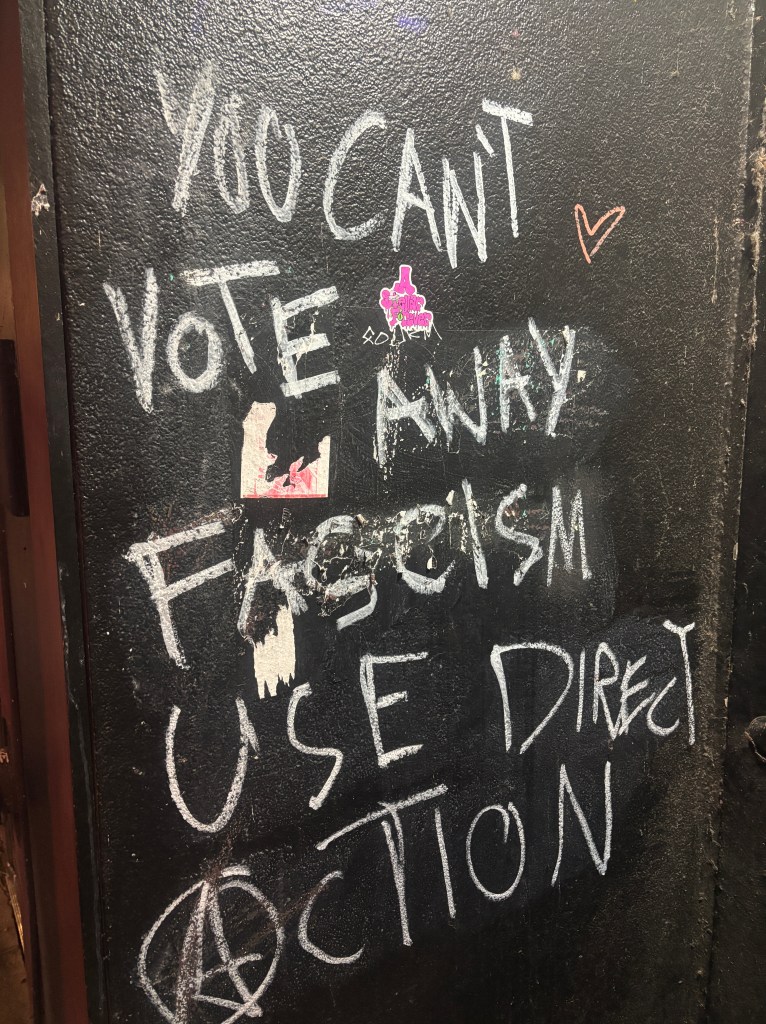 YOU CAN'T
VOTE
AWAY
FASCISM
USE DIRECT
ACTION